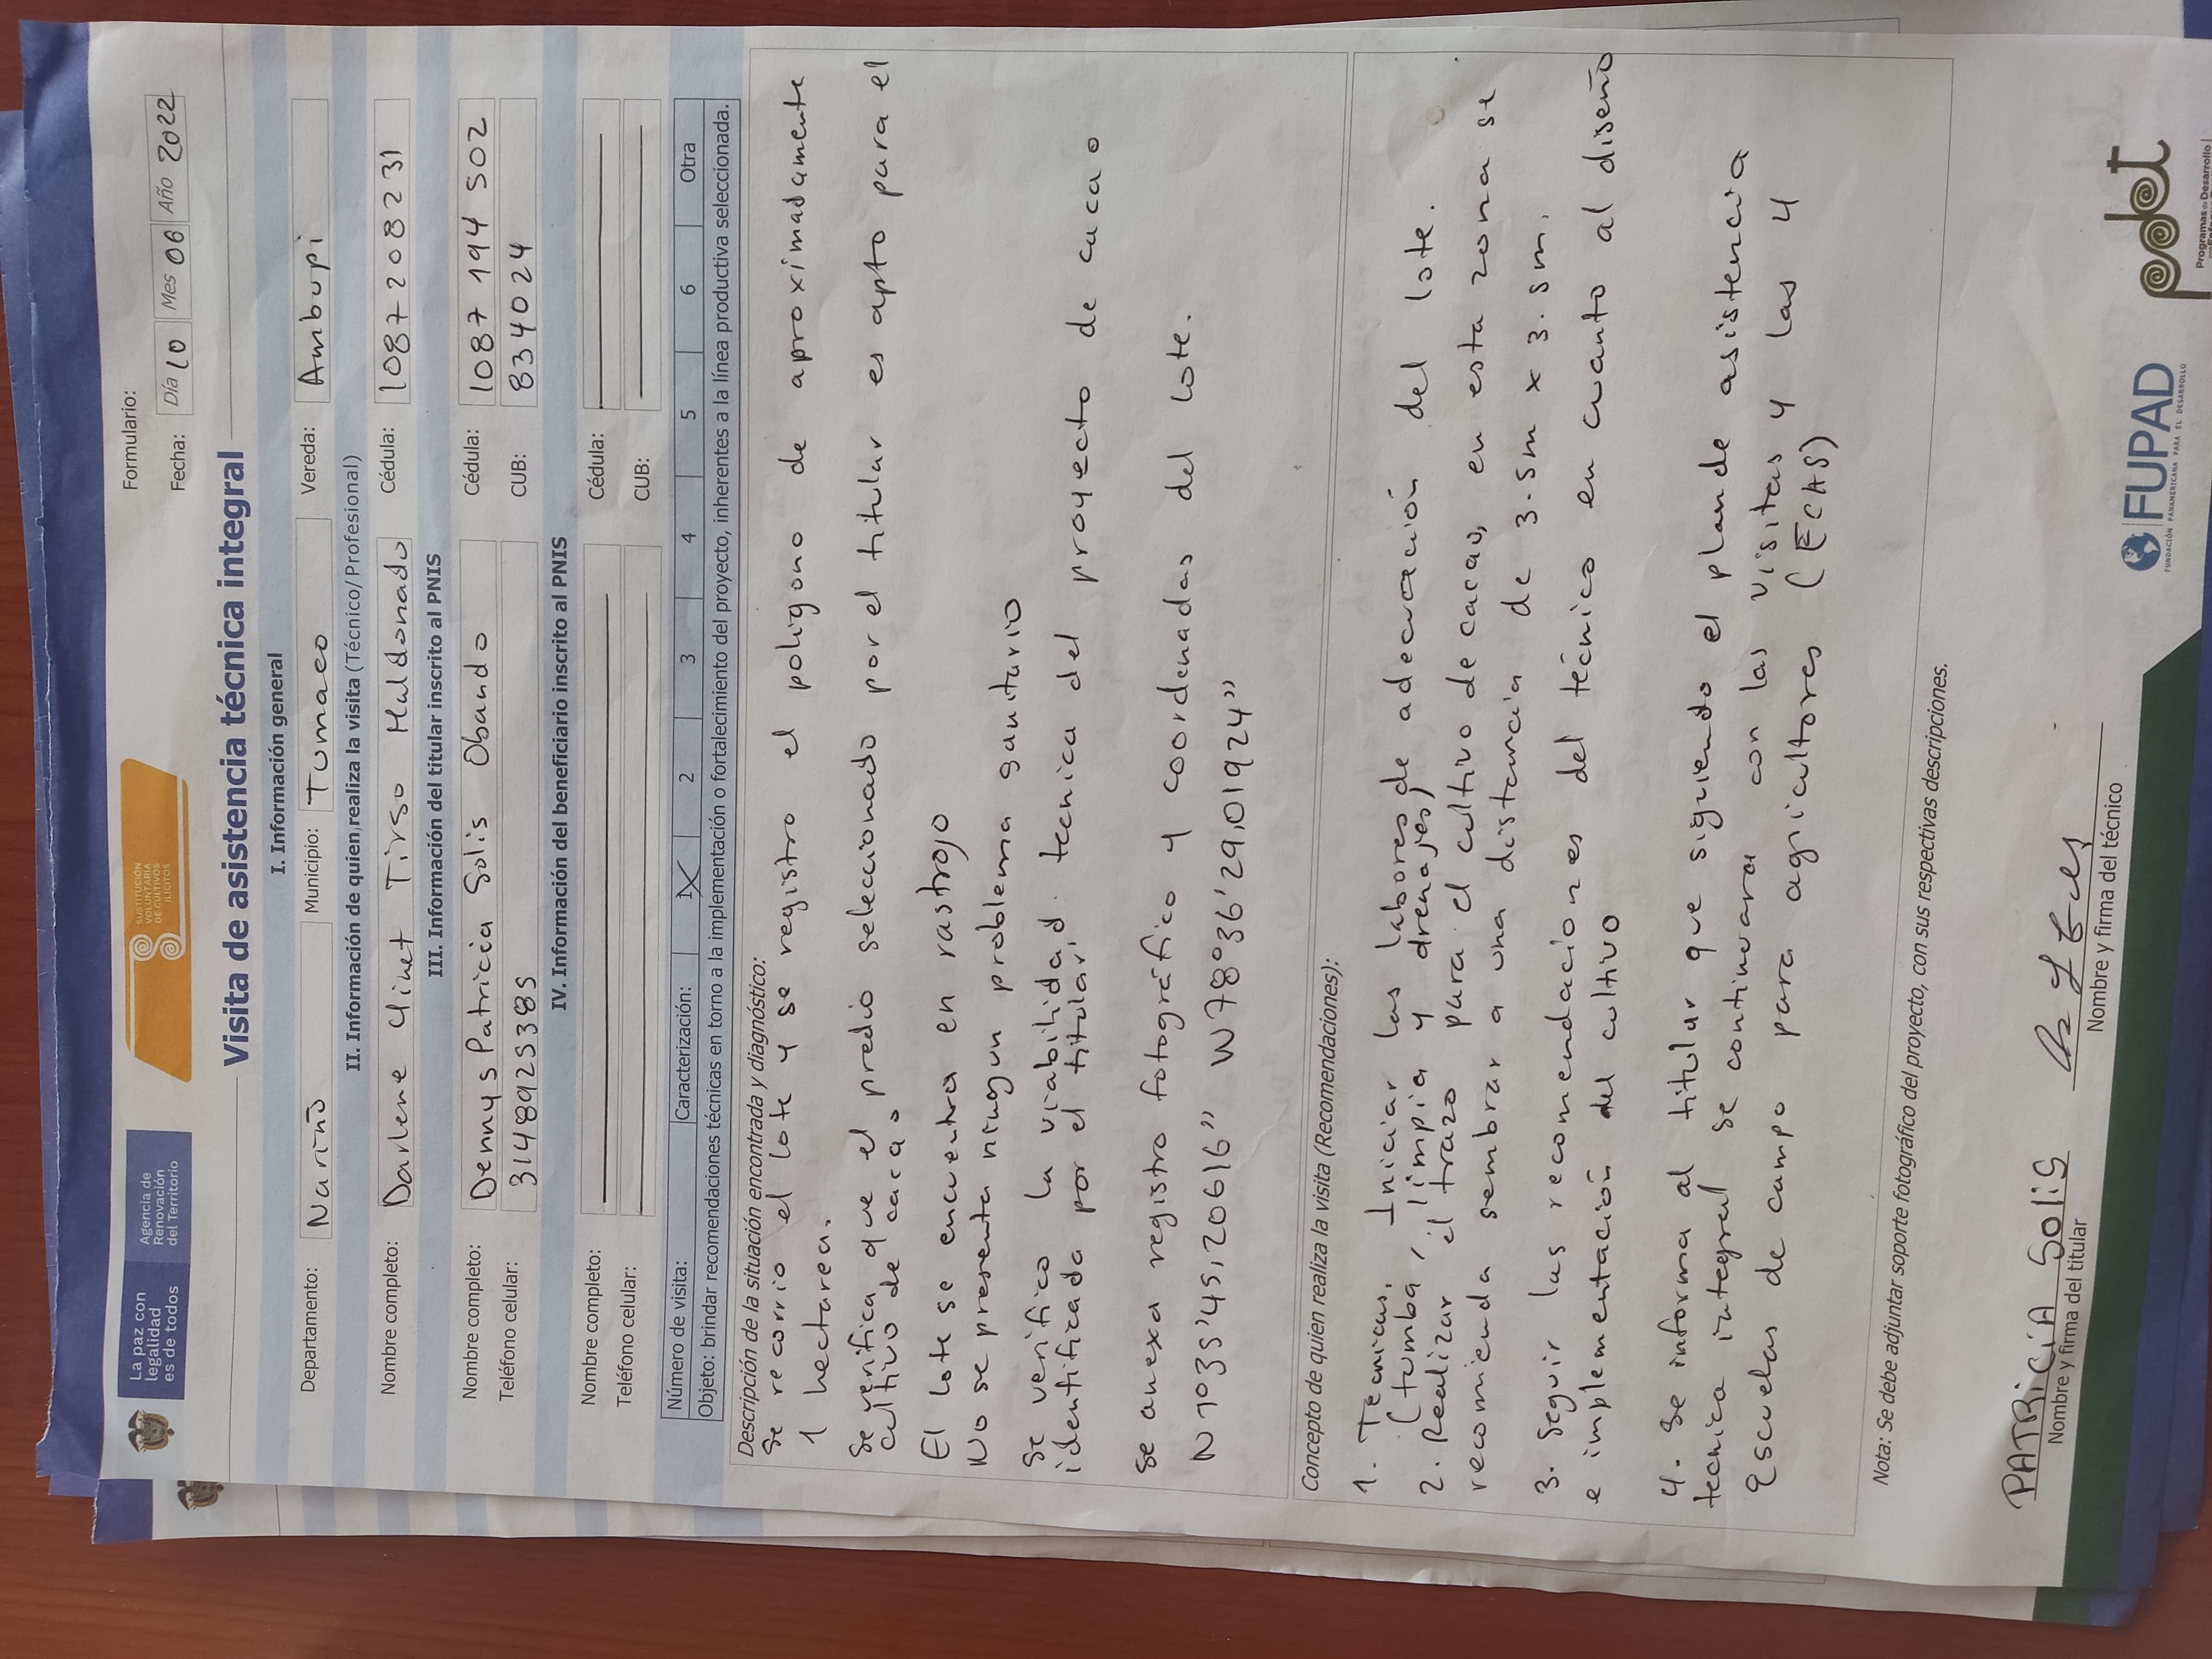 La paz con
legalidad
es de todos
Agencia de
Renovación
del Territorio
SUSTITUCIÓN
VOLUNTARIA
DE CULTIVOS
ILÍCITOS
Formulario:
Fecha: Día 10 Mes 06 Año 2022
Visita de asistencia técnica integral
I. Información general
Departamento: Nariño Municipio: Tumaco Vereda: Ambupi
II. Información de quien realiza la visita (Técnico/Profesional)
Nombre completo: Darlene Yinet Tirso Maldonado Cédula: 1087208231
III. Información del titular inscrito al PNIS
Nombre completo: Dennys Patricia Solis Obando Cédula: 1087194502
Teléfono celular: 3148925385 CUB: 834024
IV. Información del beneficiario inscrito al PNIS
Nombre completo: Cédula:
Teléfono celular: CUB:
Número de visita: Caracterización: 1 X 2 3 4 5 6 Otra
Objeto: brindar recomendaciones técnicas en torno a la implementación o fortalecimiento del proyecto, inherentes a la línea productiva seleccionada.
Descripción de la situación encontrada y diagnóstico:
Se recorrio el lote y se registro el poligono de aproximadamente
1 hectarea.
Se verifica que el predio seleccionado por el titular es apto para el
cultivo de cacao
El lote se encuentra en rastrojo
No se presenta ningun problema sanitario
Se verifico la viabilidad tecnica del proyecto de cacao
identificada por el titular,
Se anexa registro fotográfico y coordenadas del lote.
N 1°35'45,20616" W78°36'29,01924"
Concepto de quien realiza la visita (Recomendaciones):
1. Tecnicas. Iniciar las labores de adecuación del lote.
(tumba, limpia y drenajes)
2. Realizar el trazo para el cultivo de cacao, en esta zona se
recomienda sembrar a una distancia de 3.5m x 3.5m.
3. Seguir las recomendaciones del técnico en cuanto al diseño
e implementación del cultivo
4. Se informa al titular que siguiendo el plan de asistencia
tecnica integral se continuara con las visitas y las 4
Escuelas de campo para agricultores (ECAS)
Nota: Se debe adjuntar soporte fotográfico del proyecto, con sus respectivas descripciones.
PATRICIA SOLIS
Nombre y firma del titular
Nombre y firma del técnico
FUPAD
FUNDACIÓN PANAMERICANA PARA EL DESARROLLO
pdet
Programas de Desarrollo